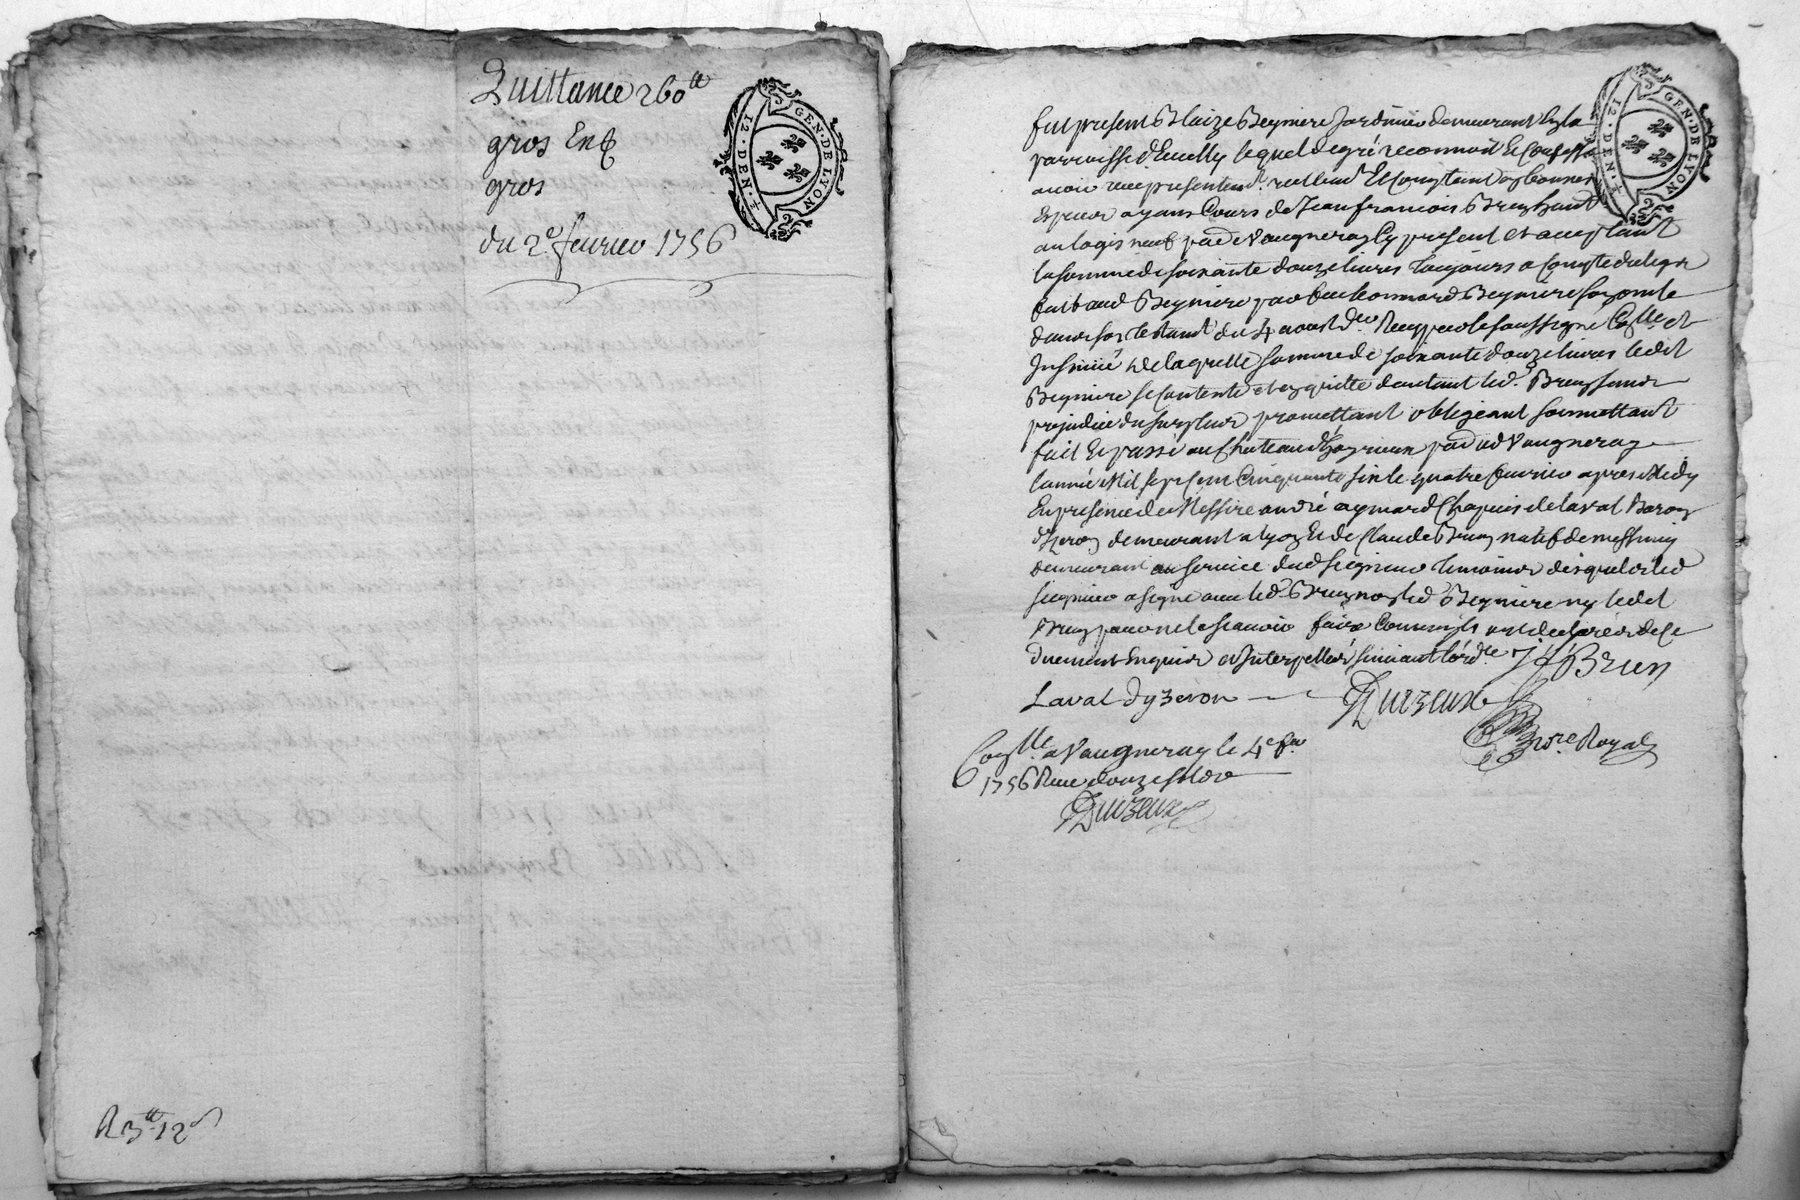 Quittance 260ᵗᵗ
gros En
gros
du 2ᵉ fevrier 1756
GEN · DE LYON
12 · DEN · ⁺
R 3ᵗᵗ 12ˢ
GEN · DE LYON
12 · DEN · ⁺
fut present Blaize Beyniere Jardinier demeurant
parroisse d'Ecully lequel de gré reconnoit Et Confesse
avoir reçu presentemᵗ reellemᵗ Et Comptant En bonnes
Especes ayans Cours de Jean francois Brun hante
au logis neuf pᵈᵉ Vaugneray Cy present et aceptant
la somme de soixante douze livres toujours a Compte du legs
fait aud Beyniere par feu Leonnard Beyniere son oncle
dans son testamᵗ du 4 aoust dᵉʳ Reçu par le soussigné Collᵉ et
Insinué De laquelle somme de soixante douze livres ledit
Beyniere se Contente et En quitte d'autant led. Brun sans
prejudice du surplus promettant obligeant soumettant
fait Et passé au Chateau d' pᵈᵉ de Vaugneray
l'année Mil sept Cent Cinquante six le quatre fevrier apres Midy
En presence de Messire andré aymard Chapuis de laval Baron
d'Yzeron demeurant a lyon Et de Claude Brun natif de messimy
demeurant au service dud seigneur temoins desquels led
seigneur a signé avec led. Brun non led Beyniere ny ledit
Brun pour ne le scavoir faire Comme ils ont declaré de Ce
duement Enquis et Interpellés suivant l'ordᶜᵉ J f Brun
Laval d'yzeron
Duizeux
Nʳᵉ Royal
Conᵗˡˡᵉ a Vaugneray le 4ᵉ feᵛ
1756 Reçu douze sols
Duizeux